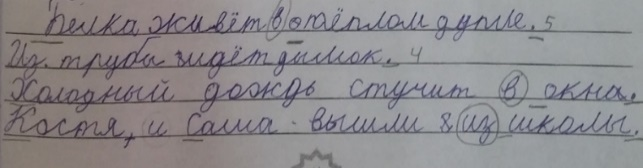 Белка живёт в тёплом дупле. 5
Из трубы идёт дымок. 4
Холодный дождь стучит в окна.
Костя, и Саша вышли из школы.